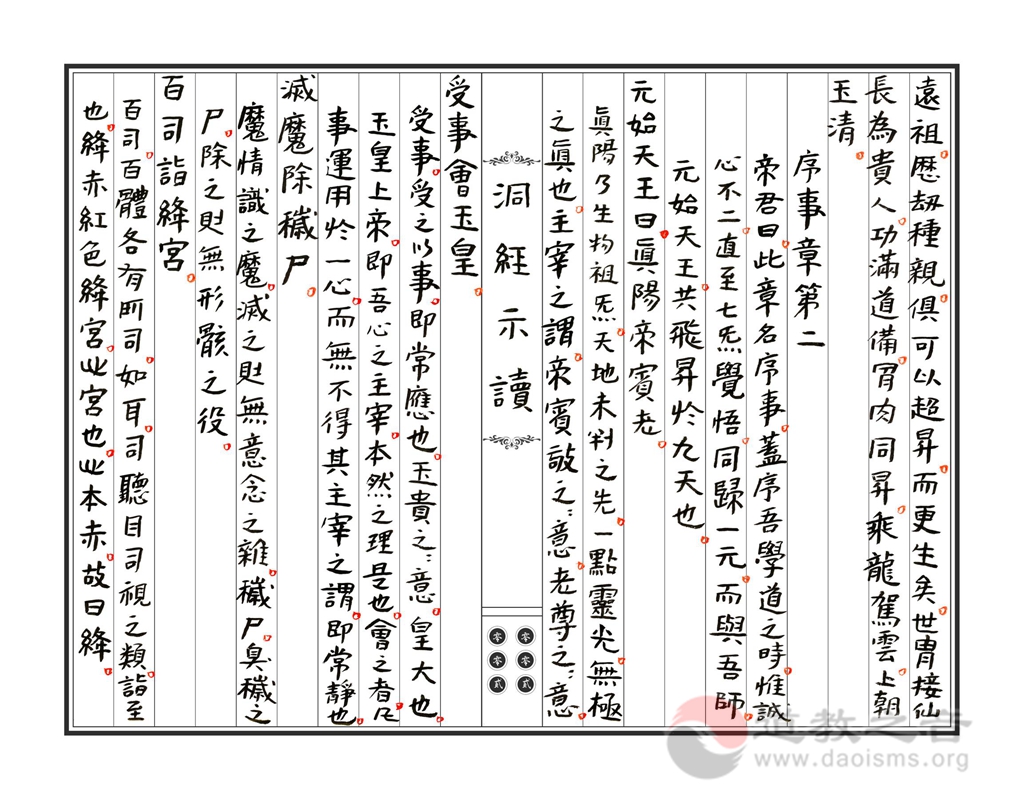 遠祖歷劫種親俱可以超昇而更生矣世胄接仙
長為貴人功滿道備骨肉同昇乘龍駕雲上朝
玉清
序事章第二
帝君曰此章名序事蓋序吾學道之時惟誠
心不二直至七炁覺悟同歸一元而與吾師
元始天王共飛昇於九天也
元始天王曰眞陽帝賓老
眞陽乃生物祖炁天地未判之先一點靈光無極
之眞也主宰之謂帝賓敬之之意老尊之之意
洞經示讀
零零
零零
貳貳
受事會玉皇
受事受之以事即常應也玉貴之之意皇大也
玉皇上帝即吾心之主宰本然之理是也會之者凡
事運用於一心而無不得其主宰之謂即常靜也
滅魔除穢尸
魔情識之魔滅之則無意念之雜穢尸臭穢之
尸除之則無形骸之役
百司詣絳宮
百司百體各有所司如耳司聽目司視之類詣至
也絳赤紅色絳宮心宮也心本赤故曰絳
道教之音
www.daoisms.org